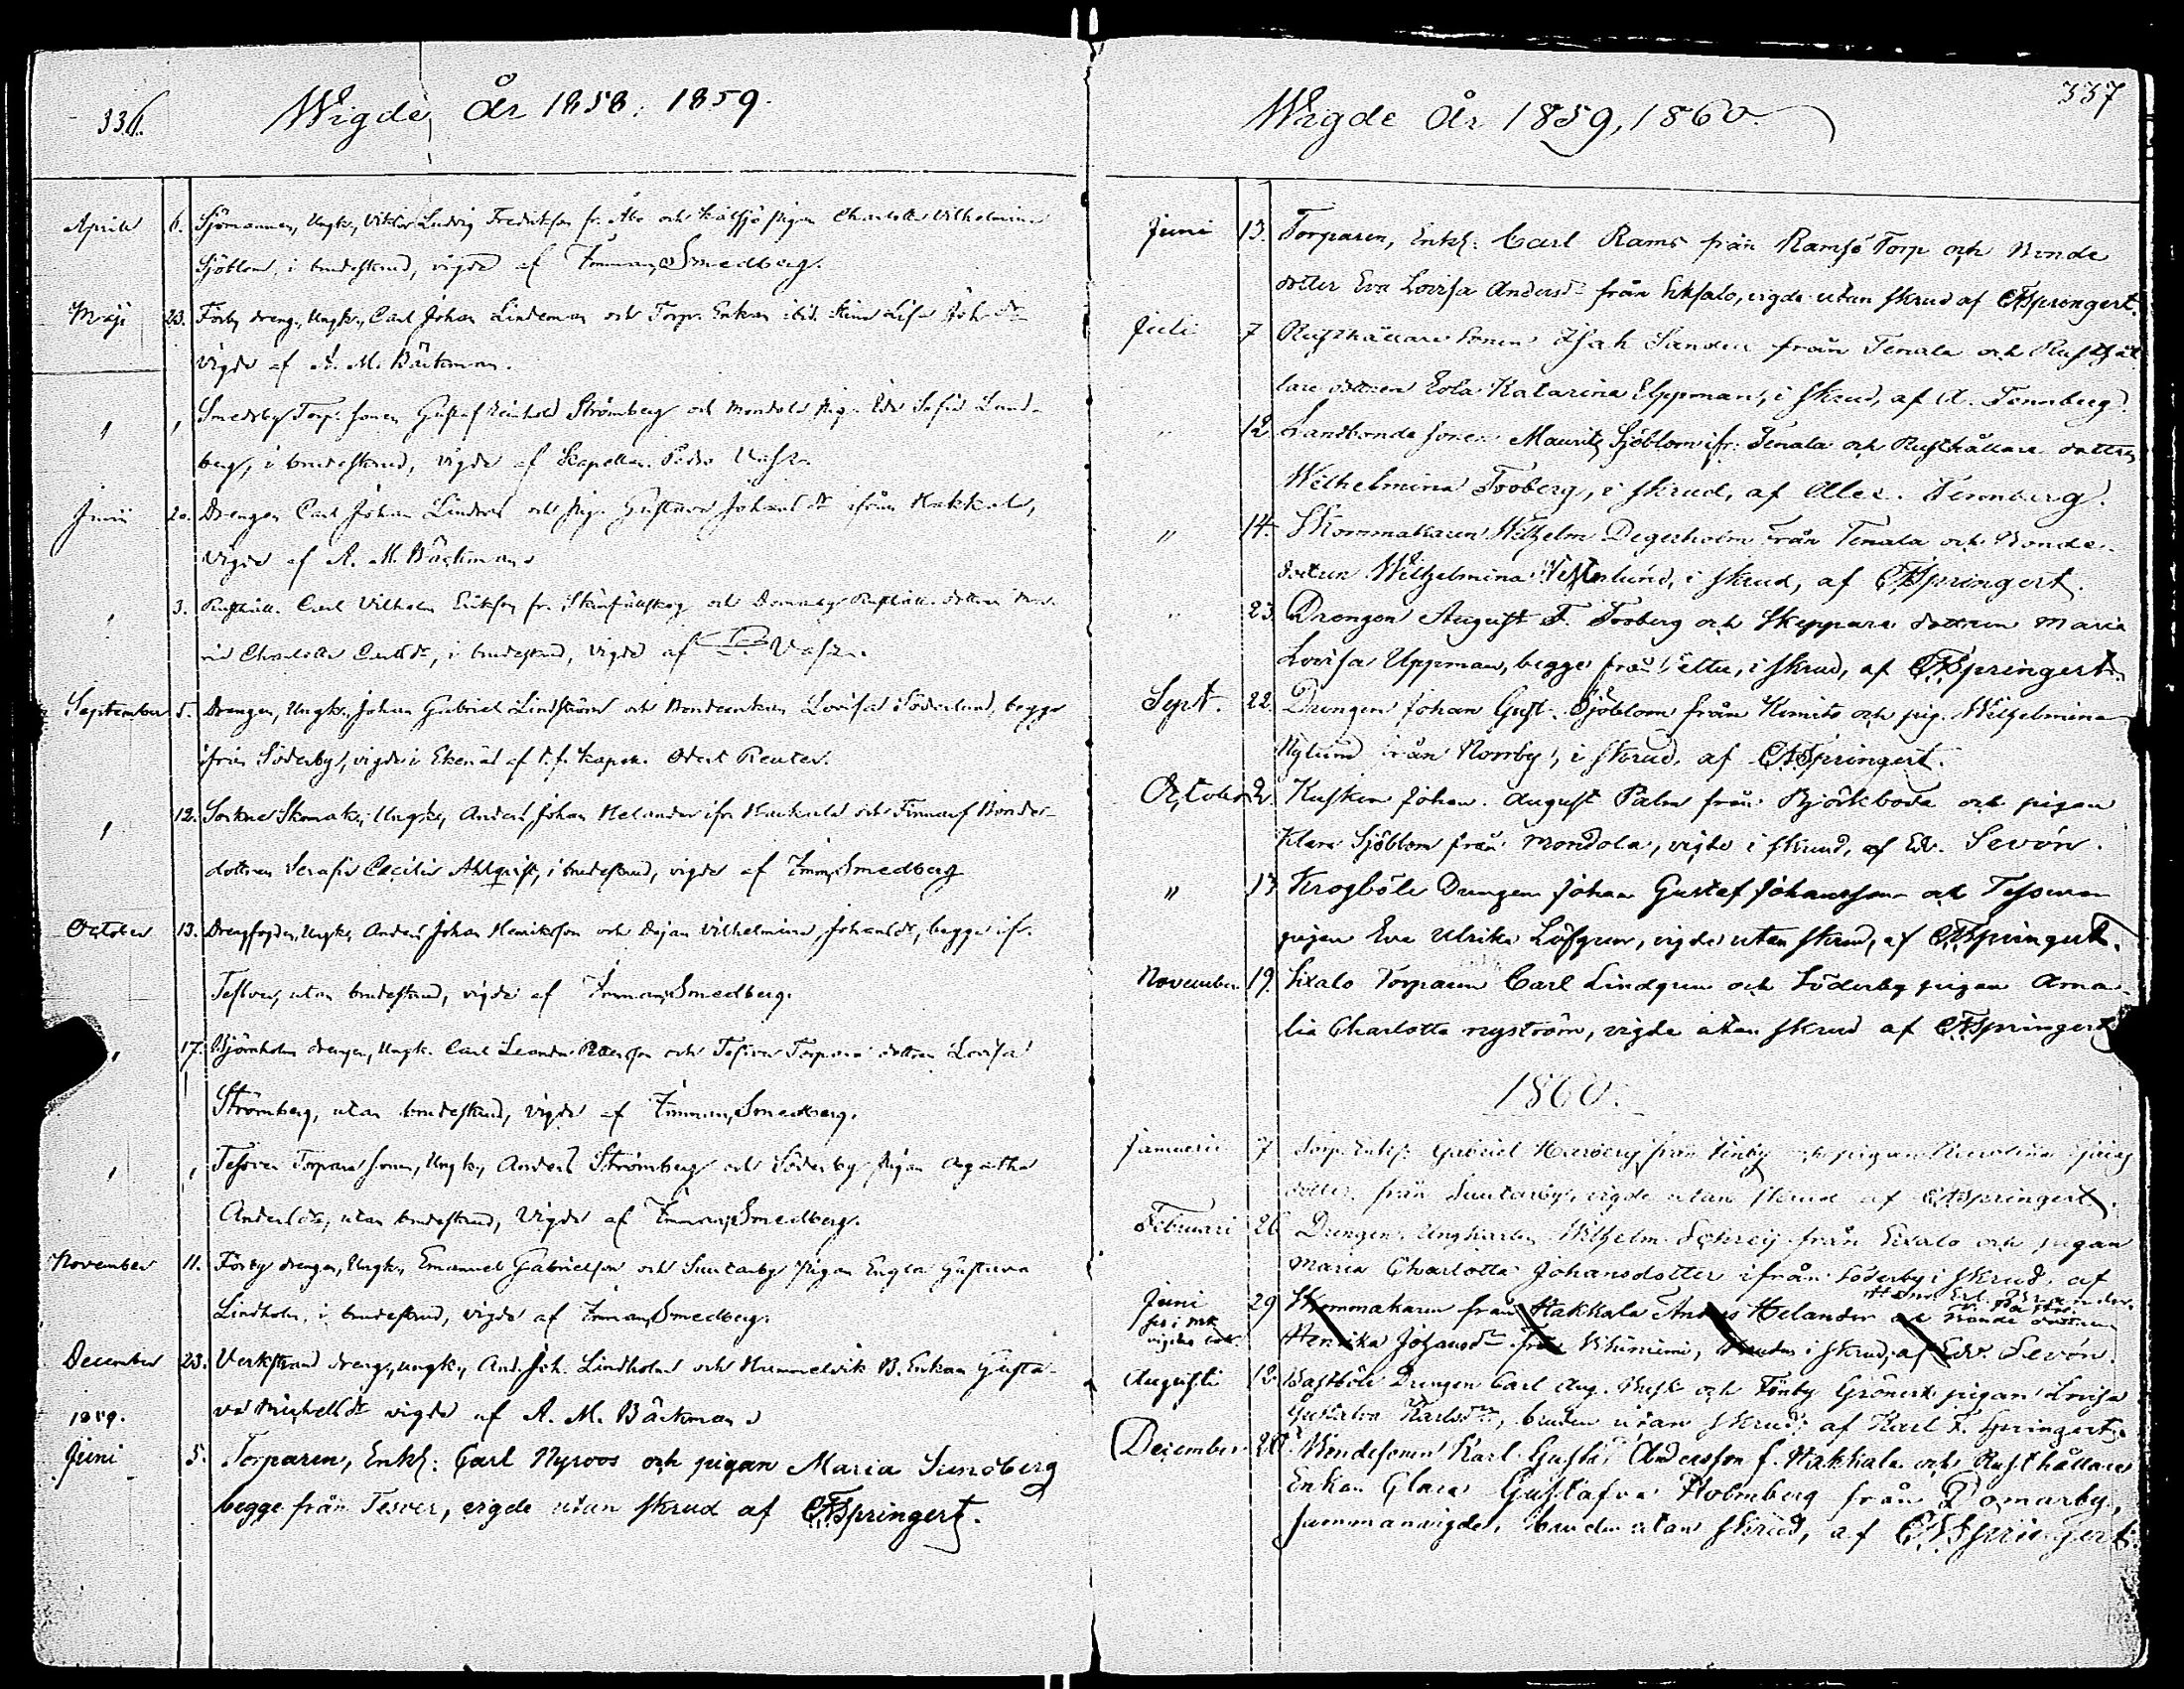 336.
Wigde År 1858. 1859.
Aprill 6. Sjömannen, Ungk., Viktor Ludvig Fredriksson fr. Åbo och pigan Charlotta Vilhelmina
Sjöblom, i brudeskrud, vigde af Imman. Smedberg.
Maji 23. Förby dreng, Ungk., Carl Johan Lindeman och Torp. Enkan ibid. Stina Lisa Joh.dr
vigde af A. M. Bäckman.
" " Smedsby Torp. sonen Gustaf Reinhold Strömberg och Mondola pig. Eda Sofia Lund-
berg, i brudeskrud, vigde af Kapellan
Junii 20. Drengen Carl Johan Lindros och pig. Gustava Johansdr ifrån Hakkala,
vigde af A. M. Bäckman.
" 3. Rusthåll. Carl Vilhelm Erikson fr. och Domarby Rusthåll. dottren
Charlotta Carlsdr, i brudeskrud, vigde af
September 5. Drengen, Ungk., Johan Gabriel Lindström och Bondeenkan Lovisa Söderlund, begge
ifrån Söderby, vigde i Ekenäs af t.f. Kapell. Odert Reuter.
" 12. Sockne Skomak., Ungk., Anders Johan Helander ifr. Hakkala och Finnarf Bonde-
dottren Serafia Cecilia Ahlqvist, i brudeskrud, vigde af Imm. Smedberg
October 13. Drengfogden, Ungk., Anders Johan Henrikson och Dejan Vilhelmina Johansdr, begge ifr.
Tesver, utan brudeskrud, vigde af Imman. Smedberg.
" 17. Björnholm drengen, Ungk. Carl Leander Peterson och Tesver Torpare dottren Lovisa
Strömberg, utan brudeskrud, vigde af Imman. Smedberg.
" " Tesver Torpare sonen, Ungk., Anders Strömberg och Söderby pigan Agatha
Andersdr, utan brudeskrud, vigde af Imman. Smedberg.
November 11. Förby drengen, Ungk., Emanuel Gabrielson och Suutarby pigan Engla Gustava
Lindholm, i brudeskrud, vigde af Imman. Smedberg.
December 23. Verkstrand dreng., ungk., And. Joh. Lindholm och Hummelvik B. Enkan Gusta-
va Michelsdr vigde af A. M. Bäckman
1859.
Juni 5. Torparen, Enkl: Carl Nyroos och pigan Maria Sundberg
begge från Tesver, vigde utan skrud af CFSpringert.
337
Wigde År 1859, 1860.
Juni 13. Torparen, Enkl: Carl Rams från Ramsö Torp och Bonde
dotter Eva Lovisa Andersdr från Eksalo, vigde utan skrud af CFSpringert.
Juli 7 Rusthållare sonen Isak Sandell från Tenala och Rusthål
lare dottren Katarina Uppman, i skrud, af A. Tennberg.
" 12 Landbonde sonen Maurits Sjöblom ifr. Tenala och Rusthållare dottren
Wilhelmina Tooberg, i skrud, af Alex. Tennberg.
" 14. Skommakaren Wilhelm Degerholm från Tenala och Bonde-
dottren Wilhelmina Westerlund, i skrud, af CFSpringert.
" 23. Drengen August F. Tooberg och Skeppare dottren Maria
Lovisa Uppman, begge från, i skrud, af CFSpringert.
Sept. 22. Drengen Johan Gust. Sjöblom från Kimito och pig. Wilhelmina
Nylund från Norrby, i skrud, af CFSpringert.
October 2. Kusken Johan August Palm från Björkboda och pigan
Klara Sjöblom från Mondola, vigde i skrud, af Edv. Sevón.
" 17 Krogböle Drengen Johan Gustaf Johansson och Tesver
pigan Eva Ulrika Löfgren, vigde utan skrud, af CFSpringert.
November 19. Eixalo Torparen Carl Lindgren och Söderby pigan Ama-
lia Charlotta Nyström, vigde utan skrud af CFSpringert
1860.
Januarii 7 Torp. Enkl: Gabriel från Finby och pigan Karolina
dotter från Suutarby, vigde utan skrud af CFSpringert.
Februari 26 Drengen Ungkarlen Wilhelm Schreij från Eixalo och pigan
Maria Charlotta Johansdotter ifrån Söderby i skrud, af
Juni 29 Skommakaren från Hakkala Anders Helander och Bonde dottren
Henrika Johansdr från, i skrud, af Edv. Sevón.
Augusti 12. Bastböle Drengen Carl Aug. Busk och Finby pigan Lovisa
Gustava Karlsdr, bruden utan skrud, af Karl F. Springert.
December 26. Bondesonen Karl Gustaf Andersson f. Hakkala och Rusthållare
Enkan Clara Gustafva Holmberg från Domarby,
sammanvigde, bruden utan skrud, af CFSpringert.